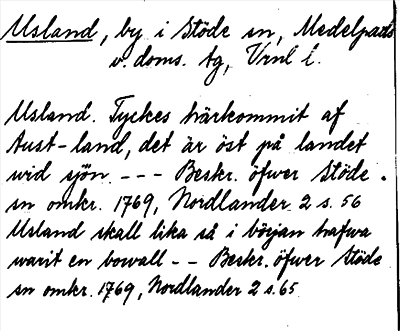 Usland, by i Stöde sn, Medelpads
v. doms. tg, Vrnl l.
Usland. Tyckes härkommit af
Aust-land, det är öst på landet
wid sjön. --- Beskr. öfwer Stöde
sn omkr. 1769, Nordlander 2 s. 56
Usland skall lika så i början hafwa
warit en bowall -- Beskr. öfwer Stöde
sn omkr. 1769, Nordlander 2 s. 65.